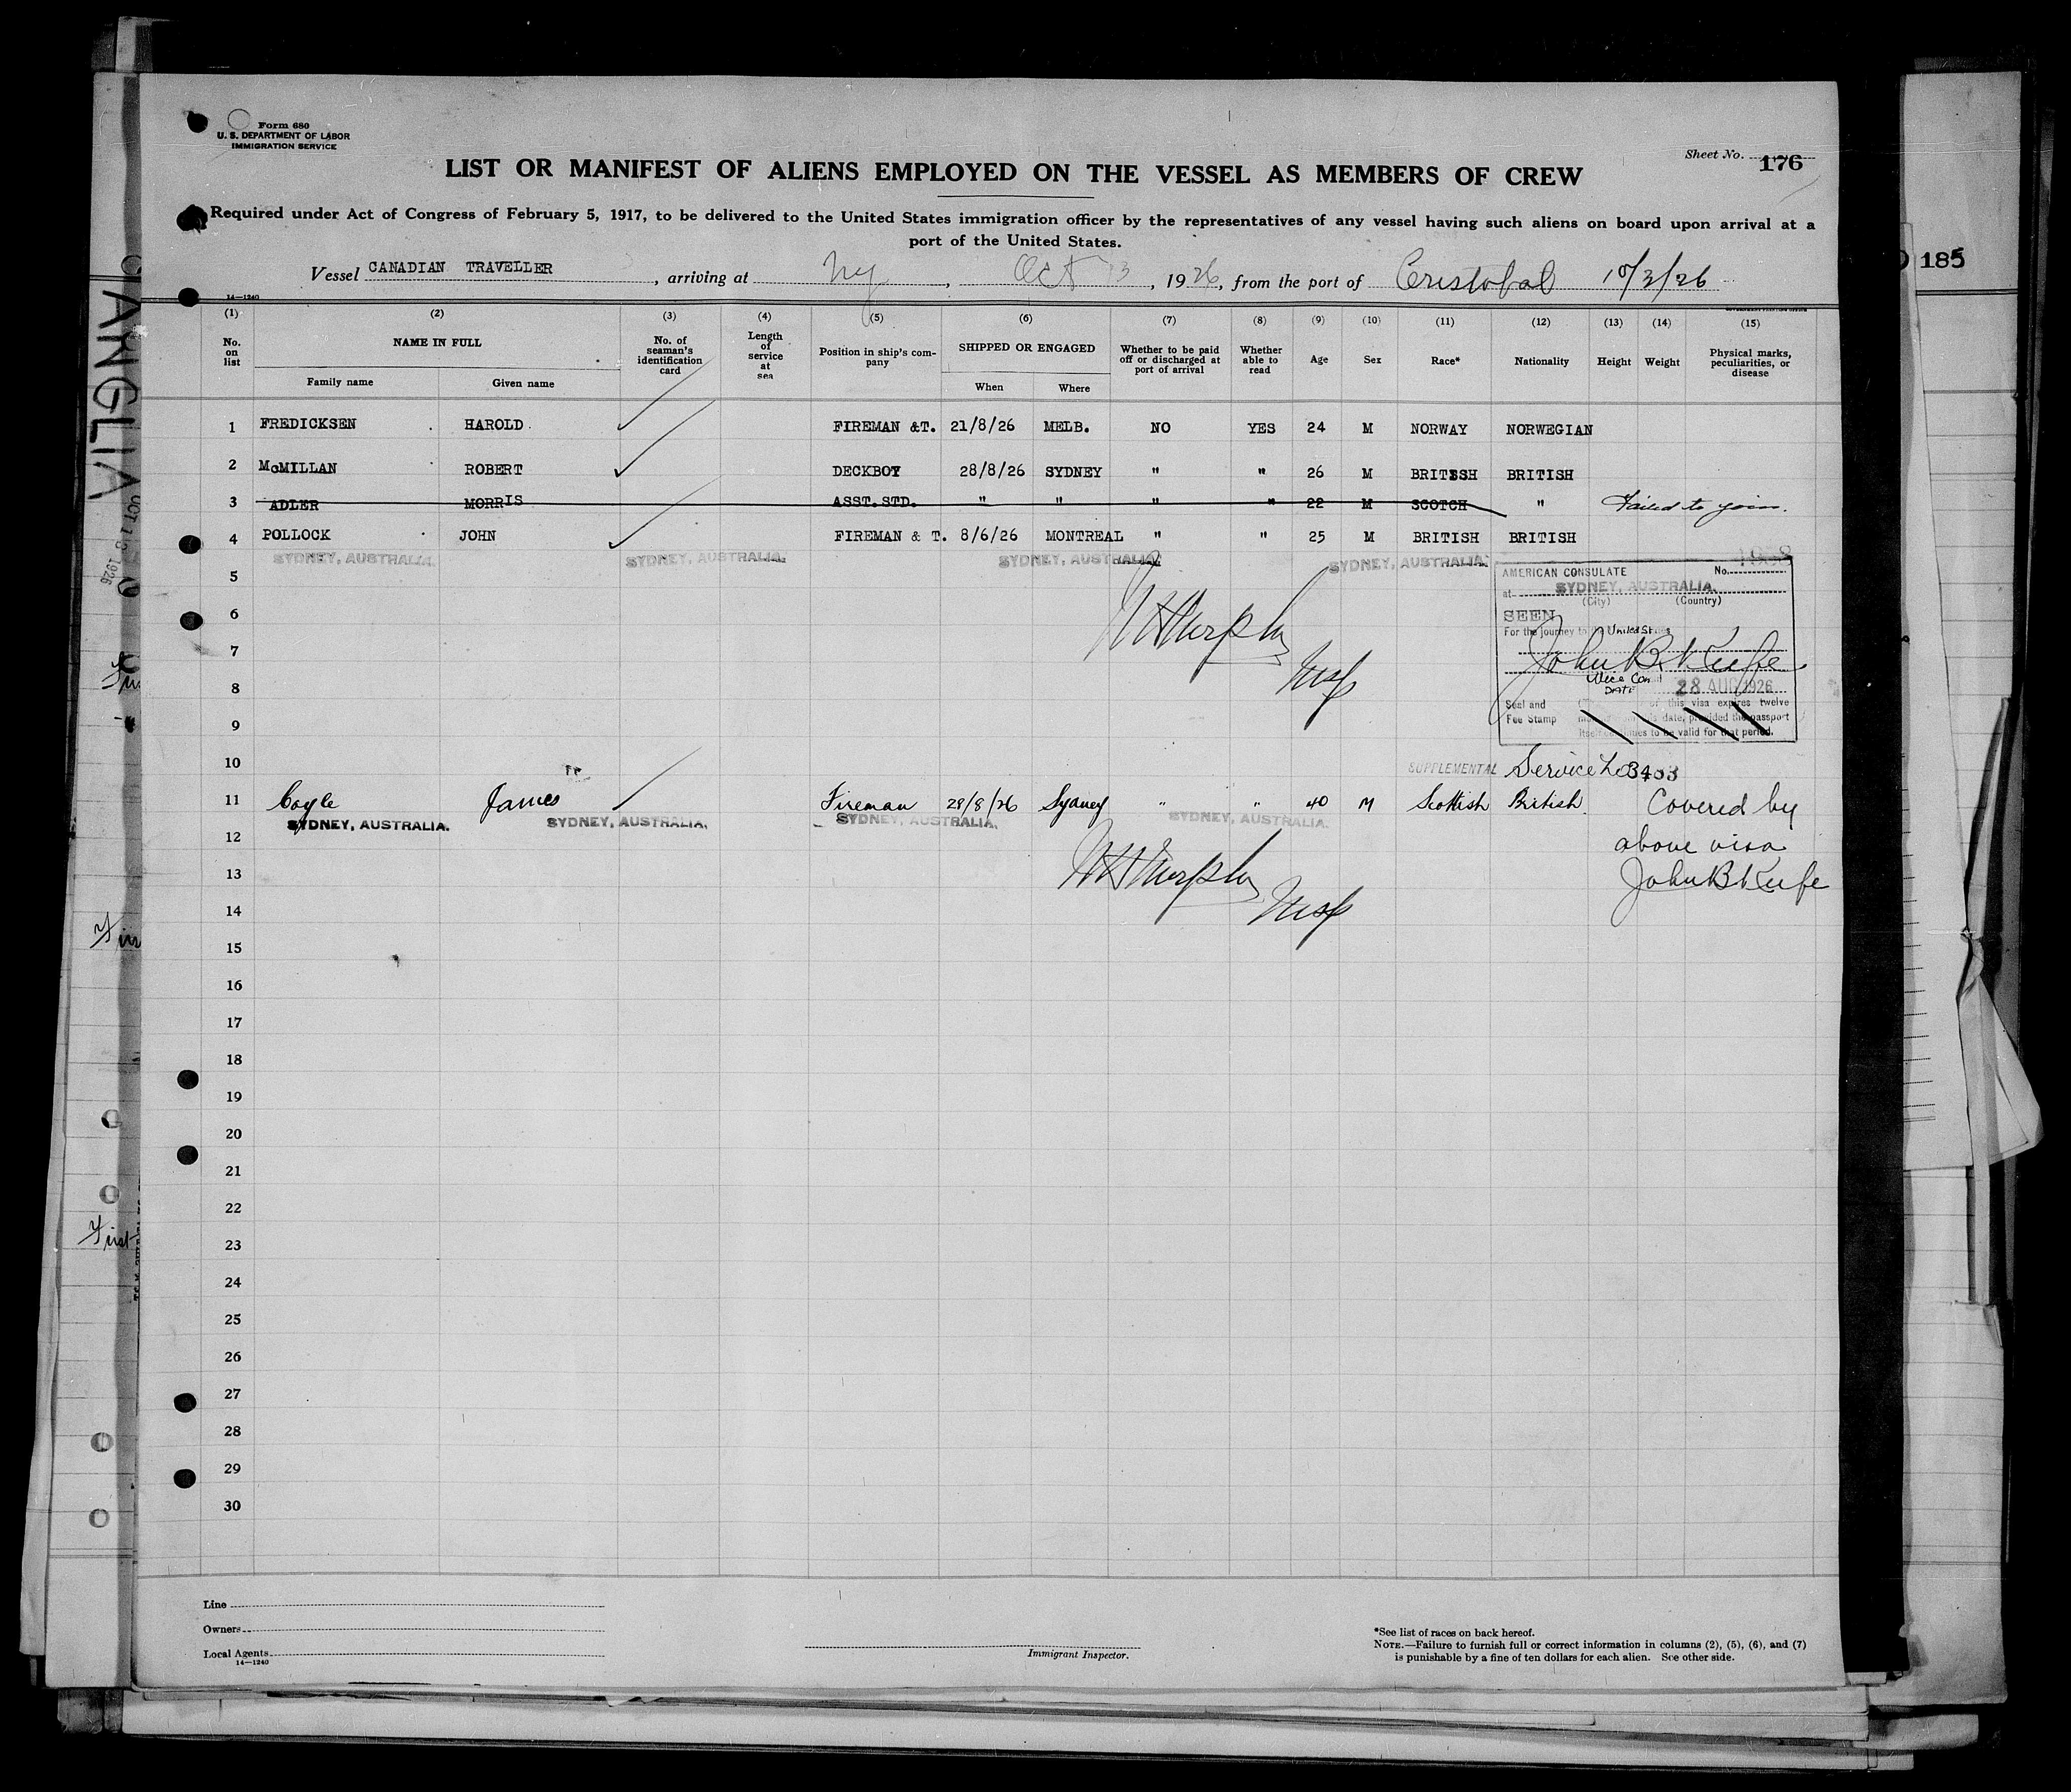 Form 680
U. S. DEPARTMENT OF LABOR
IMMIGRATION SERVICE
Sheet No. 176
LIST OR MANIFEST OF ALIENS EMPLOYED ON THE VESSEL AS MEMBERS OF CREW
Required under Act of Congress of February 5, 1917, to be delivered to the United States immigration officer by the representatives of any vessel having such aliens on board upon arrival at a
port of the United States.
Vessel CANADIAN TRAVELLER, arriving at Ny, Oct 13, 1926, from the port of Cristobal 10/2/26
14—1240
(1) (2) (3) (4) (5) (6) (7) (8) (9) (10) (11) (12) (13) (14) (15)
No. on list
NAME IN FULL
Family name Given name
No. of seaman's identification card
Length of service at sea
Position in ship's company
SHIPPED OR ENGAGED
When Where
Whether to be paid off or discharged at port of arrival
Whether able to read
Age
Sex
Race*
Nationality
Height
Weight
Physical marks, peculiarities, or disease
1 FREDICKSEN HAROLD FIREMAN &T. 21/8/26 MELB. NO YES 24 M NORWAY NORWEGIAN
2 McMILLAN ROBERT DECKBOY 28/8/26 SYDNEY " " 26 M BRITSSH BRITISH
3 ADLER MORRIS ASST.STD. " " " " 22 M SCOTCH " Failed to join.
4 POLLOCK JOHN FIREMAN & T. 8/6/26 MONTREAL " " 25 M BRITISH BRITISH
SYDNEY, AUSTRALIA. SYDNEY, AUSTRALIA. SYDNEY, AUSTRALIA. SYDNEY, AUSTRALIA.
5
6
7
8
9
10
Murphy
Insp
AMERICAN CONSULATE No.
at SYDNEY, AUSTRALIA.
(City) (Country)
SEEN
For the journey to the United States
John B Keefe
Vice Consul
DATE 28 AUG 1926
Seal and
Fee Stamp
of this visa expires twelve
date, provided the passport
itself continues to be valid for that period.
SUPPLEMENTAL Service No 3403
11 Coyle James Fireman 28/8/26 Sydney " " 40 M Scottish British. Covered by
SYDNEY, AUSTRALIA. SYDNEY, AUSTRALIA. SYDNEY, AUSTRALIA. SYDNEY, AUSTRALIA.
12 above visa
13 Murphy John B Keefe
14 Insp
15
16
17
18
19
20
21
22
23
24
25
26
27
28
29
30
Line
Owners
Local Agents
14—1240
Immigrant Inspector.
*See list of races on back hereof.
NOTE.—Failure to furnish full or correct information in columns (2), (5), (6), and (7)
is punishable by a fine of ten dollars for each alien. See other side.
ANGLIA
OCT 18 1926
First
185